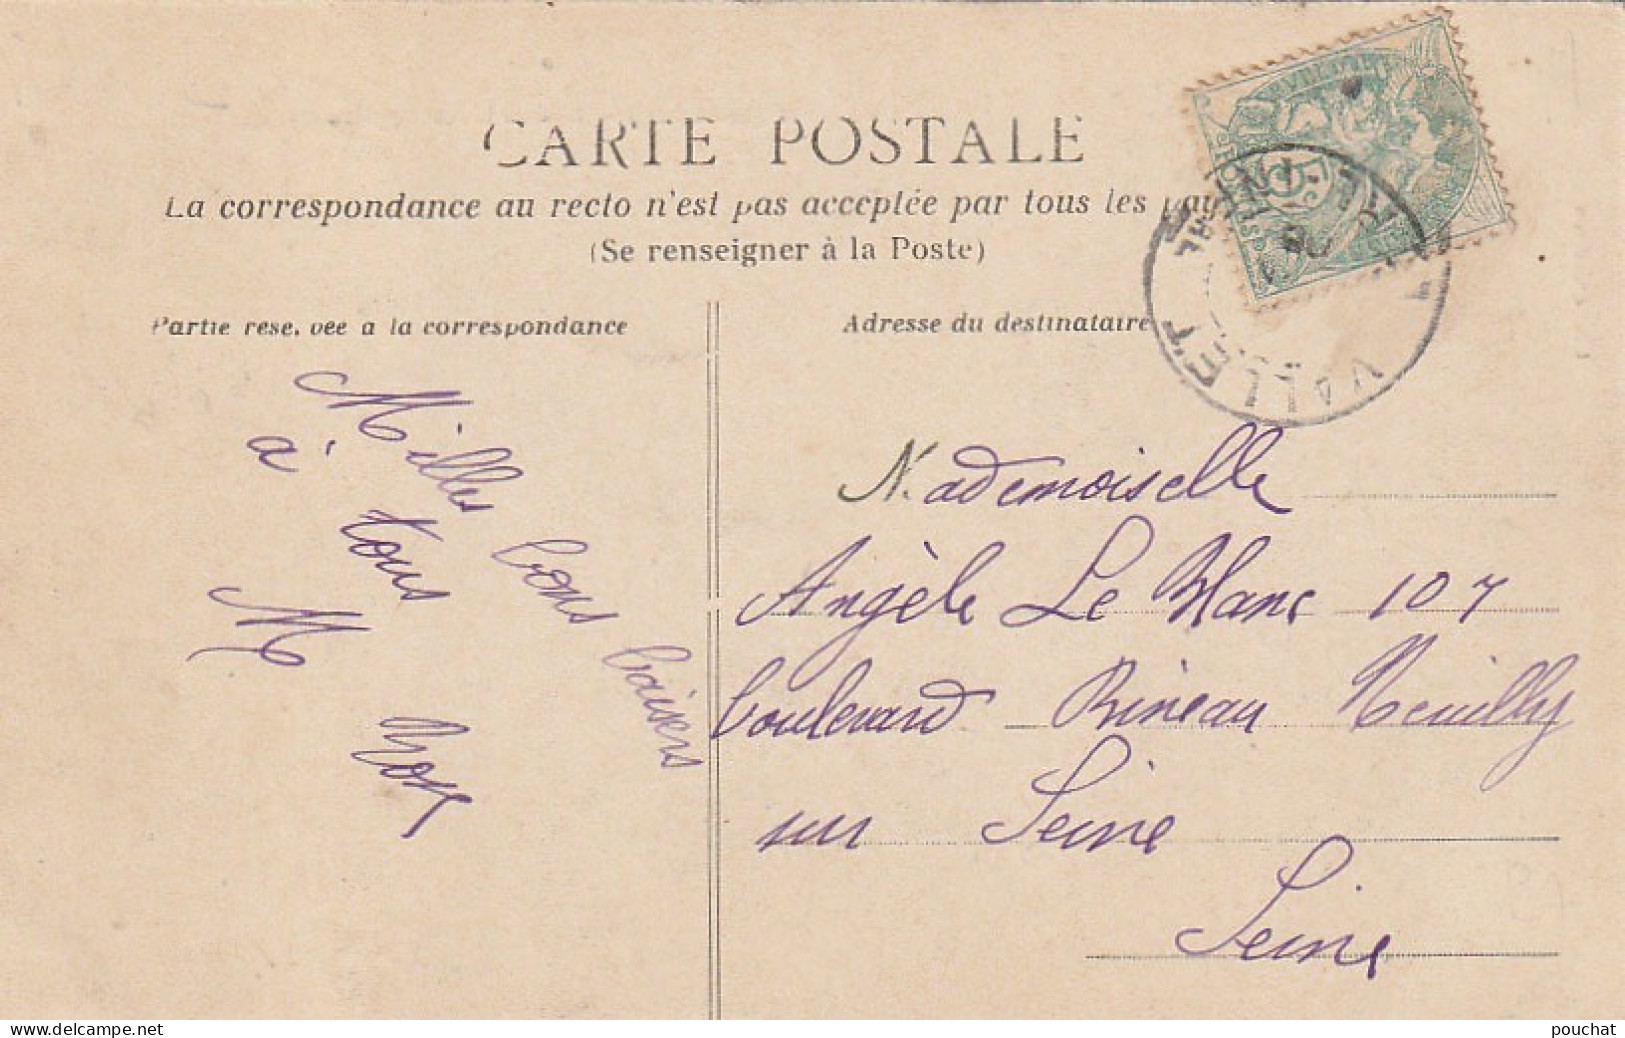 CARTE POSTALE
La correspondance au recto n'est pas acceptée par tous les pay
(Se renseigner à la Poste)
Partie rese. vée a la correspondance
Adresse du destinataire
VALLET
Milles bons baisers
à tous
M
Mademoiselle
Angèle Le Blanc 107
boulevard Bineau Neuilly
sur Seine
Seine
www.delcampe.net
pouchat